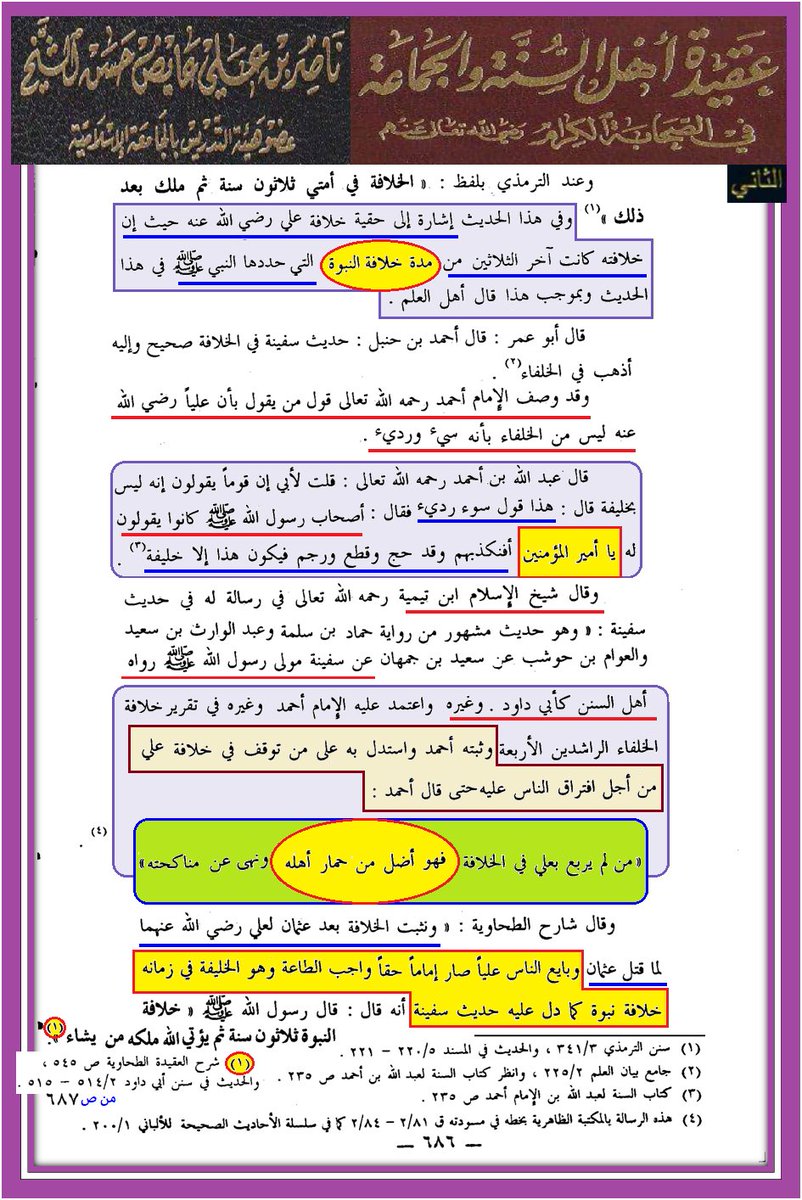 عقيدة أهل السنة والجماعة
في الصحابة الكرام رضي الله تعالى عنهم
ناصر بن علي عايض حسن الشيخ
عضو هيئة التدريس بالجامعة الإسلامية
الثاني
وعند الترمذي بلفظ : « الخلافة في أمتي ثلاثون سنة ثم ملك بعد
ذلك » (١) وفي هذا الحديث إشارة إلى حقية خلافة علي رضي الله عنه حيث إن
خلافته كانت آخر الثلاثين من مدة خلافة النبوة التي حددها النبي ﷺ في هذا
الحديث وبموجب هذا قال أهل العلم .
قال أبو عمر : قال أحمد بن حنبل : حديث سفينة في الخلافة صحيح وإليه
أذهب في الخلفاء (٢) .
وقد وصف الإمام أحمد رحمه الله تعالى قول من يقول بأن علياً رضي الله
عنه ليس من الخلفاء بأنه سيء ورديء .
قال عبد الله بن أحمد رحمه الله تعالى : قلت لأبي إن قوماً يقولون إنه ليس
بخليفة قال : هذا قول سوء رديء فقال : أصحاب رسول الله ﷺ كانوا يقولون
له يا أمير المؤمنين أفنكذبهم وقد حج وقطع ورجم فيكون هذا إلا خليفة (٣) .
وقال شيخ الإسلام ابن تيمية رحمه الله تعالى في رسالة له في حديث
سفينة : « وهو حديث مشهور من رواية حماد بن سلمة وعبد الوارث بن سعيد
والعوام بن حوشب عن سعيد بن جمهان عن سفينة مولى رسول الله ﷺ رواه
أهل السنن كأبي داود . وغيره واعتمد عليه الإمام أحمد وغيره في تقرير خلافة
الخلفاء الراشدين الأربعة وثبته أحمد واستدل به على من توقف في خلافة علي
من أجل افتراق الناس عليه حتى قال أحمد :
« من لم يربع بعلي في الخلافة فهو أضل من حمار أهله ونهى عن مناكحته » (٤) .
وقال شارح الطحاوية : « ونثبت الخلافة بعد عثمان لعلي رضي الله عنهما
لما قتل عثمان وبايع الناس علياً صار إماماً حقاً واجب الطاعة وهو الخليفة في زمانه
خلافة نبوة كما دل عليه حديث سفينة أنه قال : قال رسول الله ﷺ « خلافة
النبوة ثلاثون سنة ثم يؤتي الله ملكه من يشاء » (١) .
(١) شرح العقيدة الطحاوية ص ٥٤٥ ،
والحديث في سنن أبي داود ٥١٤/٢ – ٥١٥ .
من ص ٦٨٧
(١) سنن الترمذي ٣٤١/٣ ، والحديث في المسند ٢٢٠/٥ – ٢٢١ .
(٢) جامع بيان العلم ٢٢٥/٢ ، وانظر كتاب السنة لعبد الله بن أحمد ص ٢٣٥ .
(٣) كتاب السنة لعبد الله بن الإمام أحمد ص ٢٣٥ .
(٤) هذه الرسالة بالمكتبة الظاهرية بخطه في مسودته ق ٢/٨١ – ٢/٨٤ كما في سلسلة الأحاديث الصحيحة للألباني ٢٠٠/١ .
— ٦٨٦ —